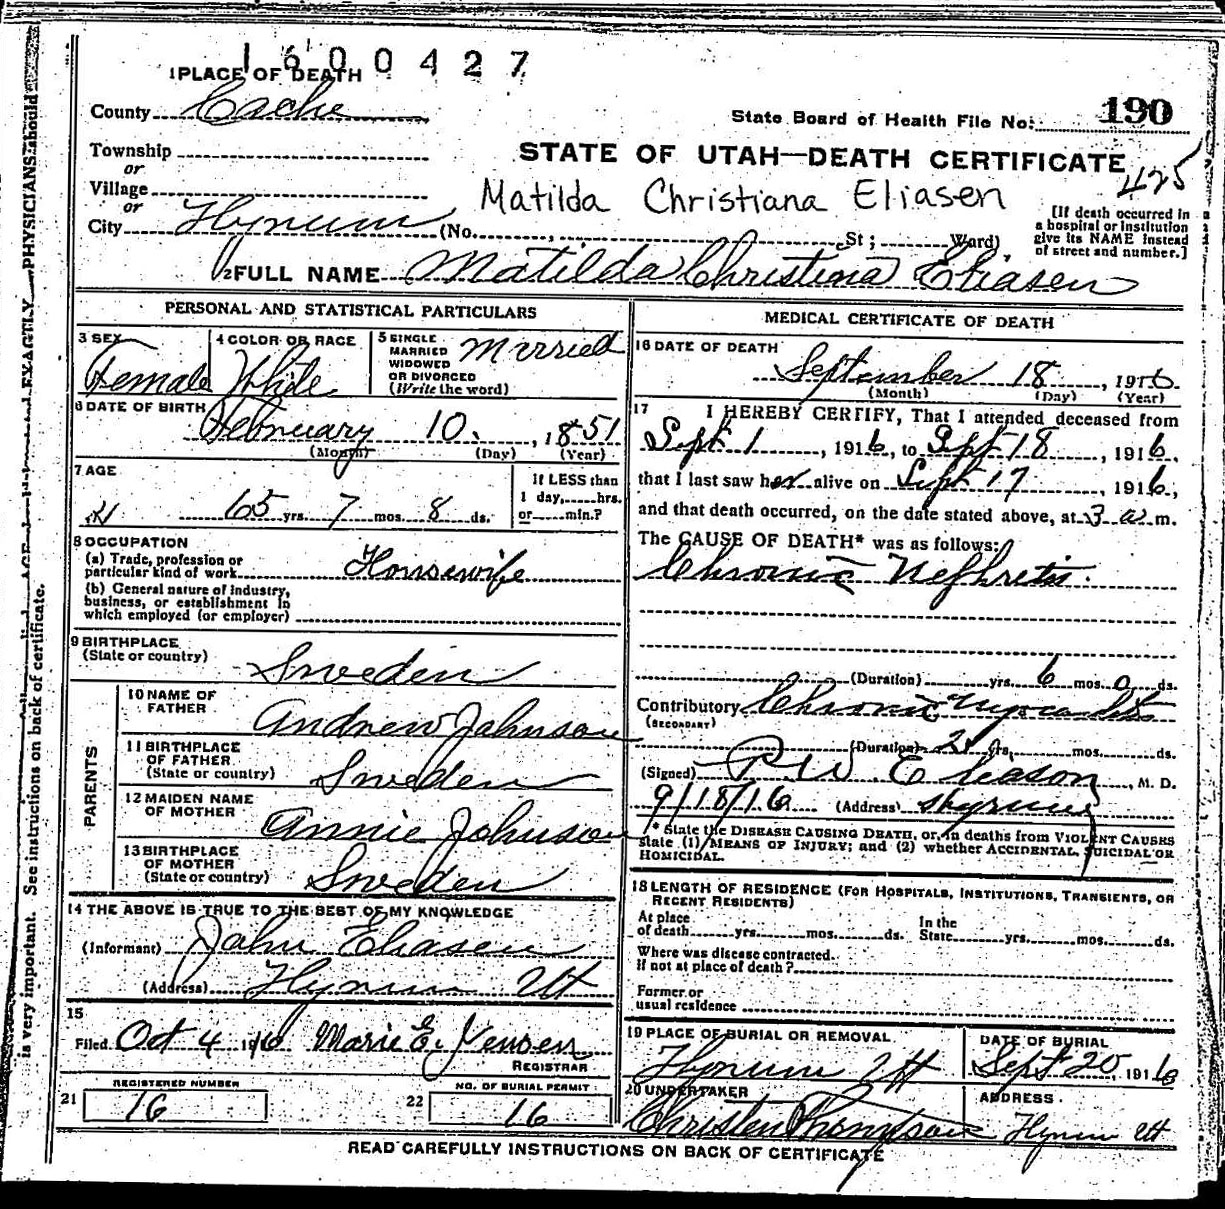 1600427
1 PLACE OF DEATH
County Cache
State Board of Health File No. 190
Township
or
STATE OF UTAH—DEATH CERTIFICATE
425
Village
or
Matilda Christiana Eliasen
City Hyrum (No. , St; Ward)
[If death occurred in a hospital or institution give its NAME instead of street and number.]
2 FULL NAME Matilda Christina Eliasen
PERSONAL AND STATISTICAL PARTICULARS
3 SEX Female
4 COLOR OR RACE White
5 SINGLE MARRIED WIDOWED OR DIVORCED (Write the word) Married
6 DATE OF BIRTH February 10, 1851
(Month) (Day) (Year)
7 AGE
65 yrs. 7 mos. 8 ds.
If LESS than 1 day, hrs. or min.?
8 OCCUPATION
(a) Trade, profession or particular kind of work Housewife
(b) General nature of industry, business, or establishment in which employed (or employer)
9 BIRTHPLACE (State or country) Sweden
PARENTS
10 NAME OF FATHER Andrew Johnson
11 BIRTHPLACE OF FATHER (State or country) Sweden
12 MAIDEN NAME OF MOTHER Annie Johnson
13 BIRTHPLACE OF MOTHER (State or country) Sweden
14 THE ABOVE IS TRUE TO THE BEST OF MY KNOWLEDGE
(Informant) John Eliasen
(Address) Hyrum Ut
15
Filed Oct 4 1916 Marie E. Jensen
REGISTRAR
REGISTERED NUMBER
21 16
NO. OF BURIAL PERMIT
22 16
MEDICAL CERTIFICATE OF DEATH
16 DATE OF DEATH
September 18, 1916
(Month) (Day) (Year)
17 I HEREBY CERTIFY, That I attended deceased from
Sept 1, 1916, to Sept 18, 1916,
that I last saw her alive on Sept 17, 1916,
and that death occurred, on the date stated above, at 3 a.m.
The CAUSE OF DEATH* was as follows:
Chronic Nephretis.
(Duration) yrs. 6 mos. 0 ds.
Contributory Chronic Myocarditis
(SECONDARY)
(Duration) 2 yrs. mos. ds.
(Signed) P. W. Eliason, M. D.
9/18/16 (Address) Hyrum
* State the DISEASE CAUSING DEATH, or, in deaths from VIOLENT CAUSES
state (1) MEANS OF INJURY; and (2) whether ACCIDENTAL, SUICIDAL OR
HOMICIDAL.
18 LENGTH OF RESIDENCE (FOR HOSPITALS, INSTITUTIONS, TRANSIENTS, OR
RECENT RESIDENTS)
At place of death yrs. mos. ds. In the State yrs. mos. ds.
Where was disease contracted.
if not at place of death?
Former or
usual residence
19 PLACE OF BURIAL OR REMOVAL Hyrum Ut
DATE OF BURIAL Sept 20, 1916
20 UNDERTAKER Christen Thompson
ADDRESS Hyrum Ut
READ CAREFULLY INSTRUCTIONS ON BACK OF CERTIFICATE
PHYSICIANS should
is very important. See instructions on back of certificate.